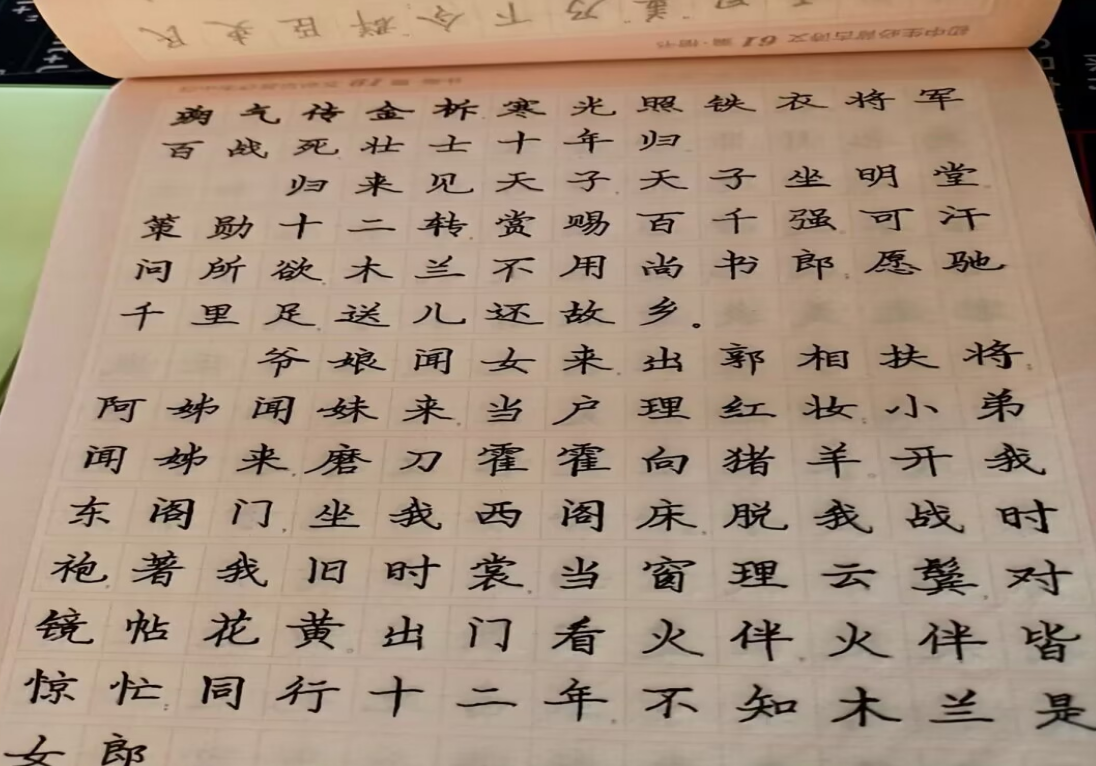 善乃下令群臣吏民
初中生必背古诗文61篇·楷书
朔气传金柝寒光照铁衣将军
百战死壮士十年归
归来见天子天子坐明堂
策勋十二转赏赐百千强可汗
问所欲木兰不用尚书郎愿驰
千里足送儿还故乡。
爷娘闻女来出郭相扶将
阿姊闻妹来当户理红妆小弟
闻姊来磨刀霍霍向猪羊开我
东阁门坐我西阁床脱我战时
袍著我旧时裳当窗理云鬓对
镜帖花黄出门看火伴火伴皆
惊忙同行十二年不知木兰是
女郎